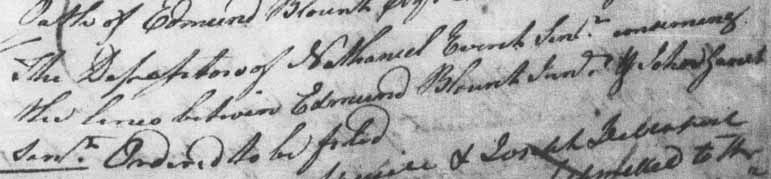 Oath of Edmund Blount
The Deposition of Nathaniel Everit Senr. concerning
the lines between Edmund Blount Junr. & John Garret
Senr. Ordered to be filed
& Joseph
to the